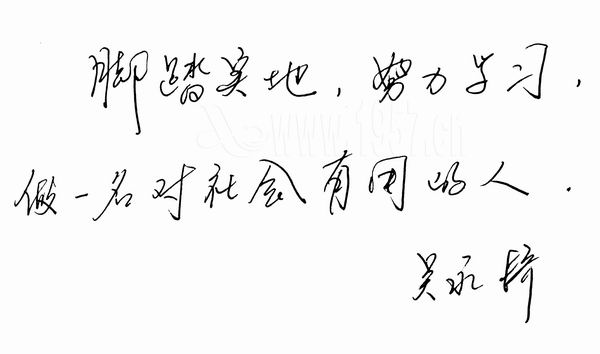 脚踏实地，努力学习，
www.1957.cn
做一名对社会有用的人．
吴永